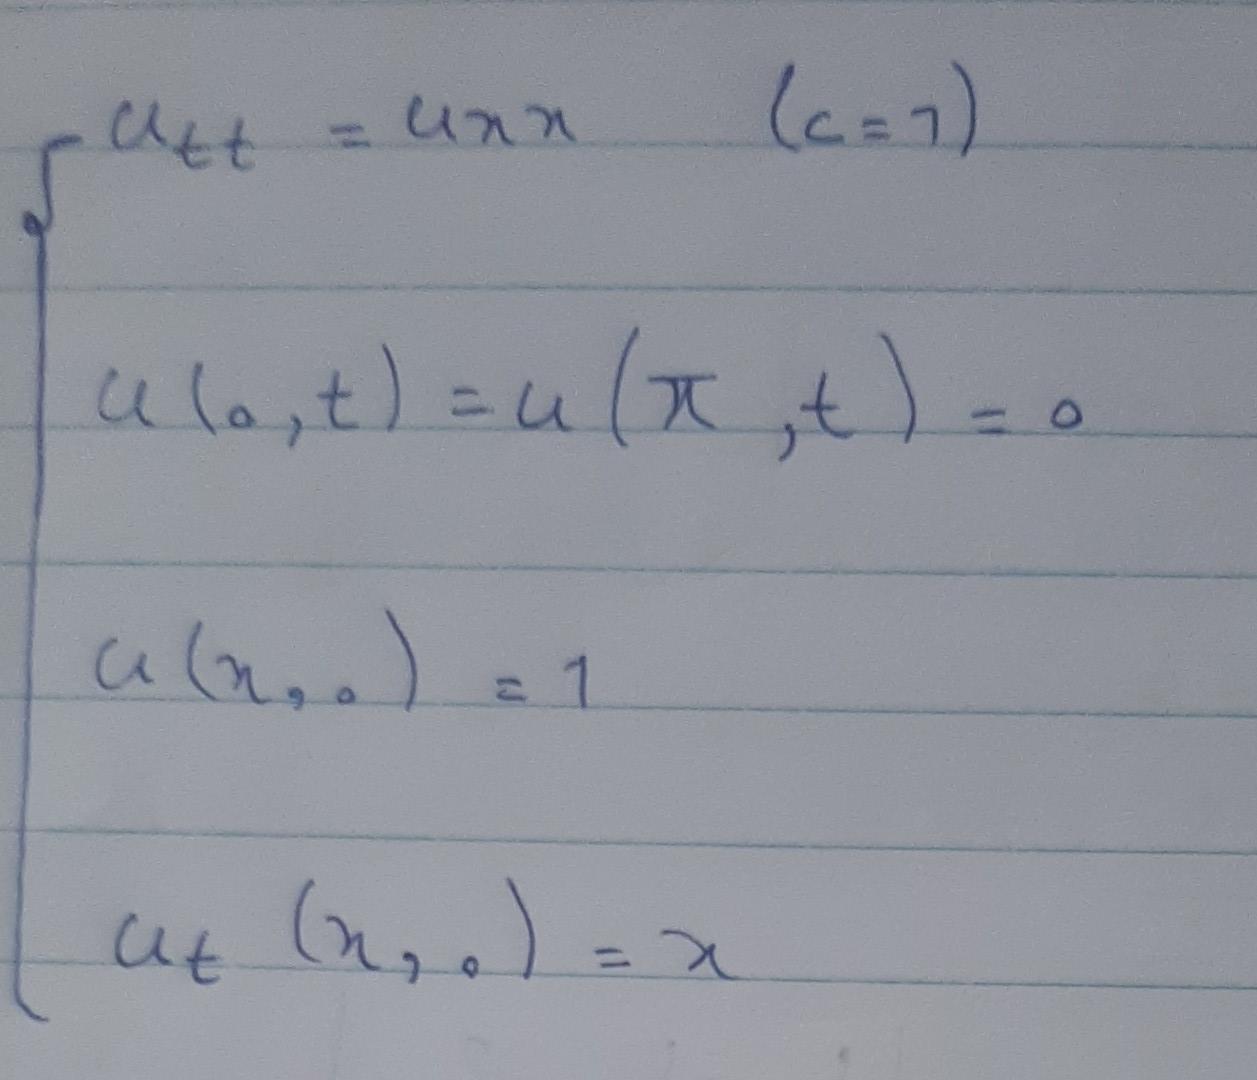 u_tt = u_xx (c=1)
u(0,t) = u(π,t) = 0
u(x,0) = 1
u_t (x,0) = x